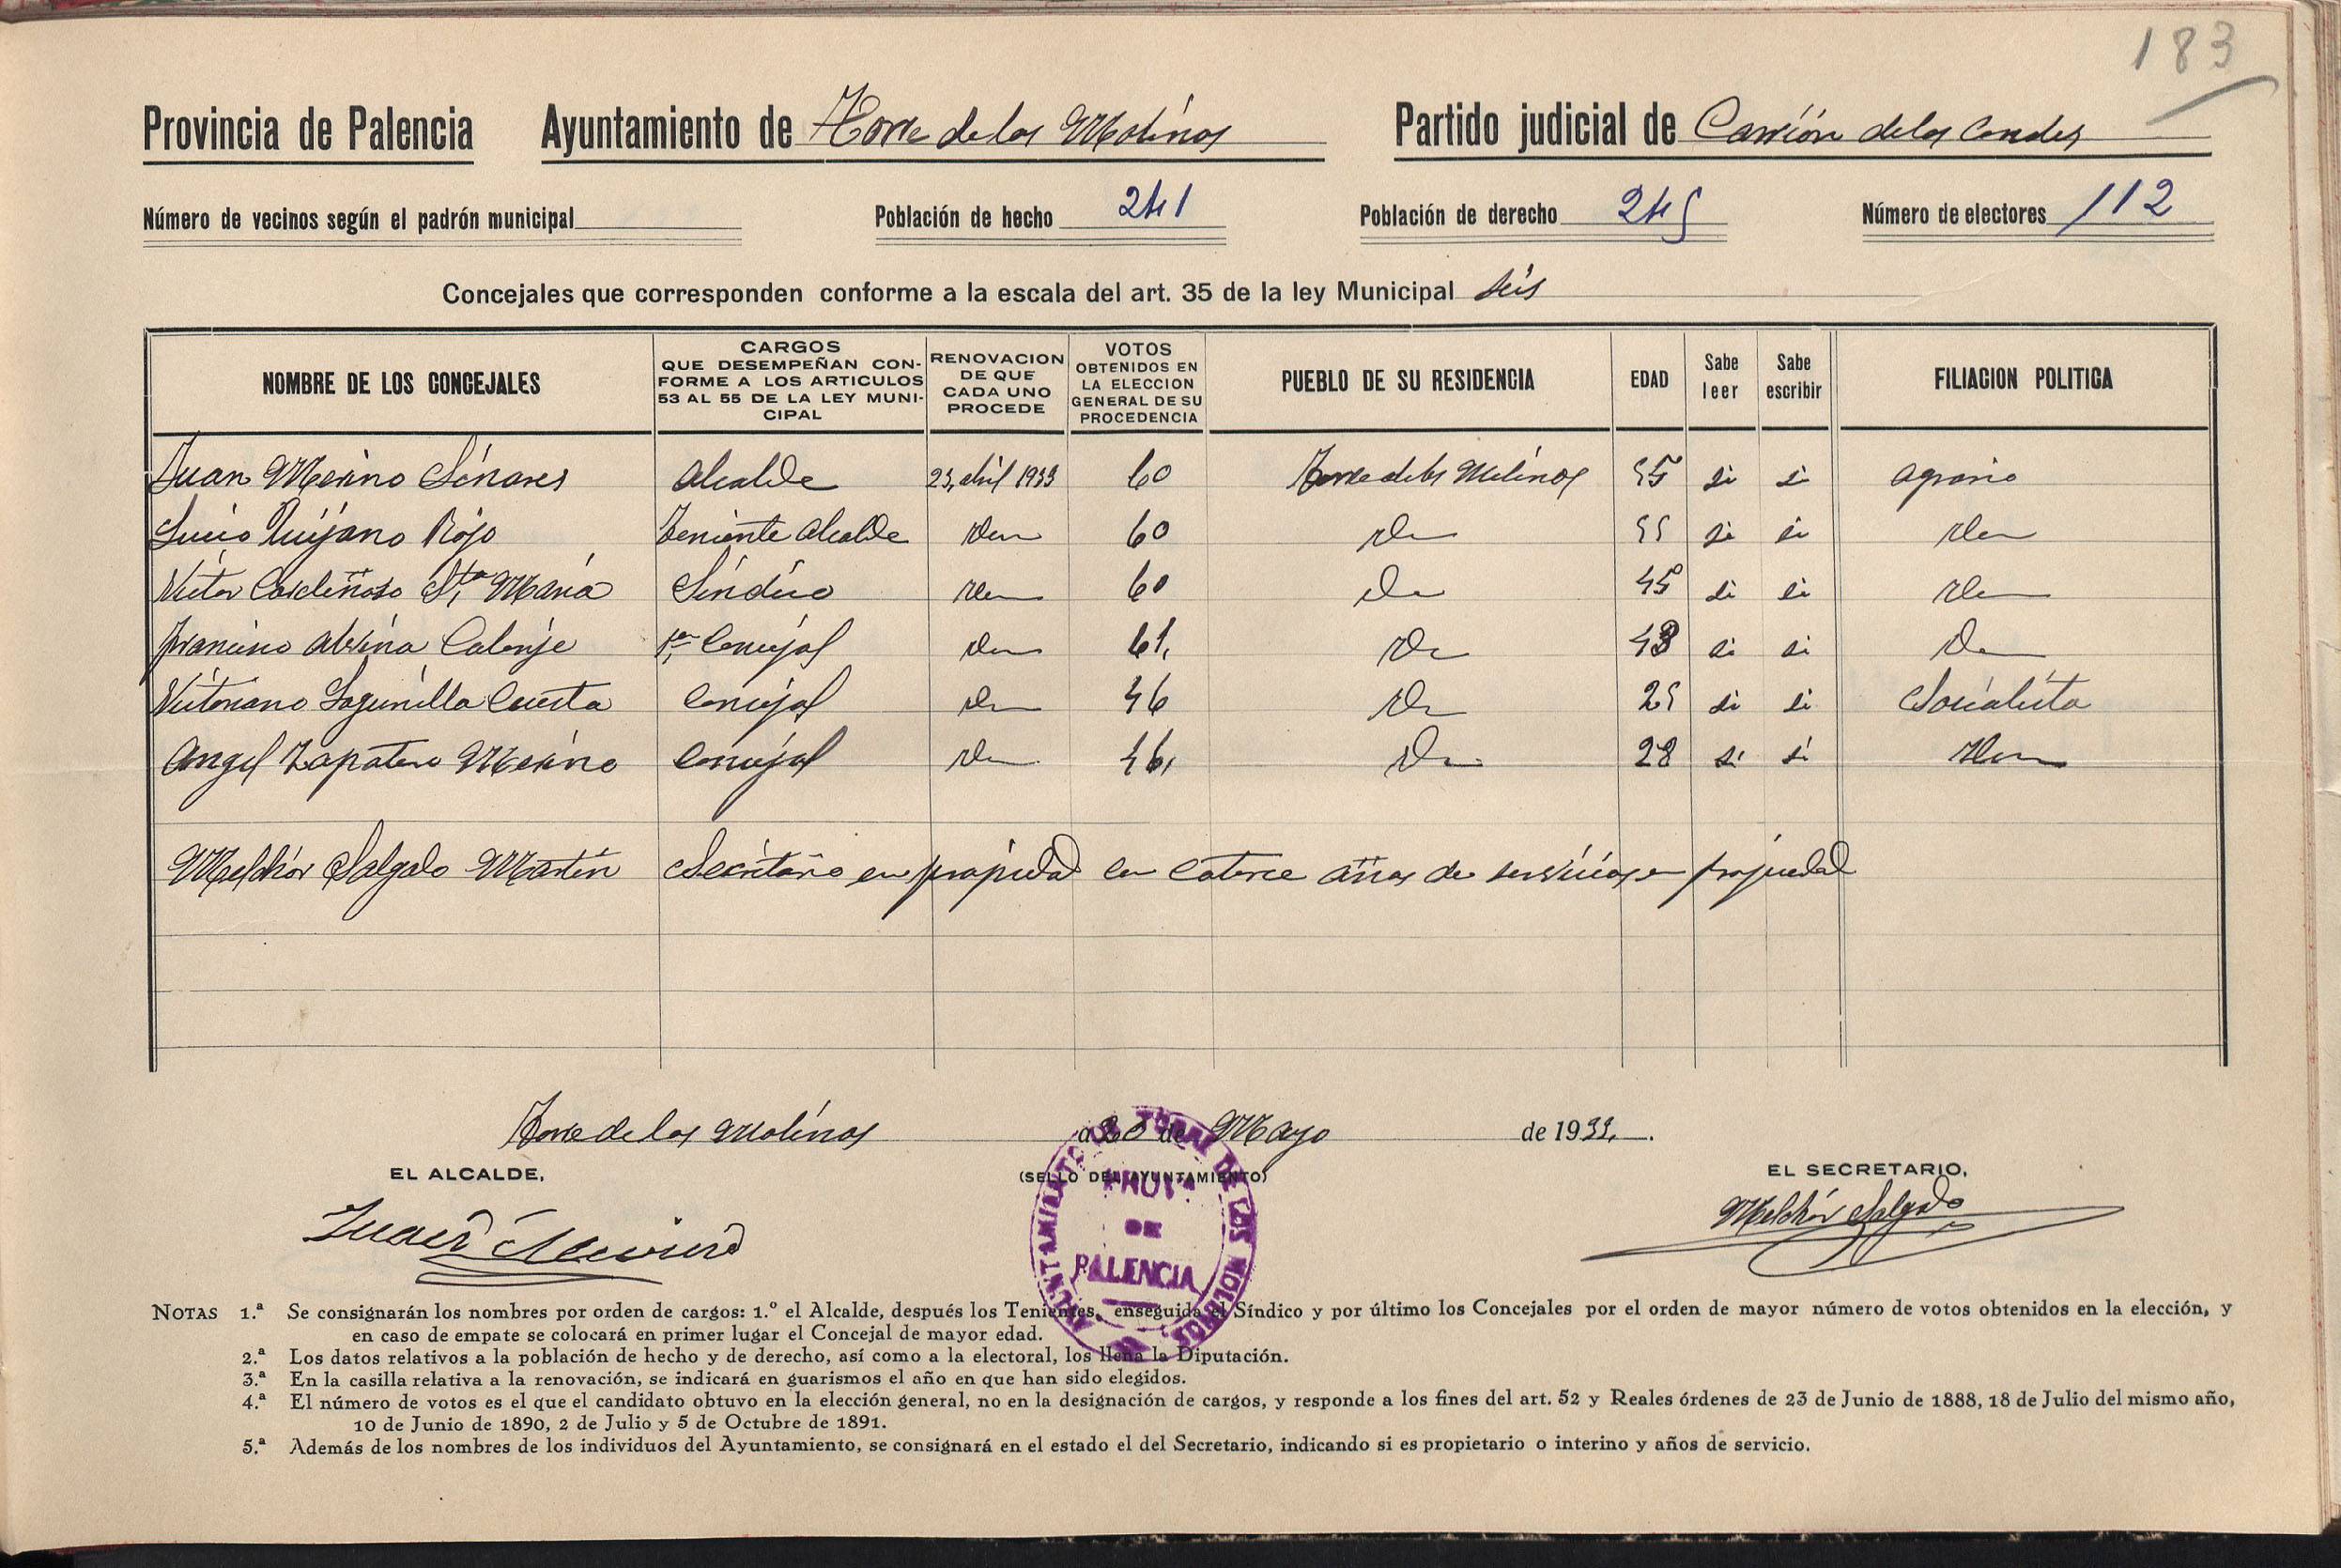 183
Provincia de Palencia Ayuntamiento de Torre de los Molinos Partido judicial de Carrión de los Condes
Número de vecinos según el padrón municipal Población de hecho 241 Población de derecho 245 Número de electores 112
Concejales que corresponden conforme a la escala del art. 35 de la ley Municipal seis
NOMBRE DE LOS CONCEJALES CARGOS QUE DESEMPEÑAN CONFORME A LOS ARTICULOS 53 AL 55 DE LA LEY MUNICIPAL RENOVACION DE QUE CADA UNO PROCEDE VOTOS OBTENIDOS EN LA ELECCION GENERAL DE SU PROCEDENCIA PUEBLO DE SU RESIDENCIA EDAD Sabe leer Sabe escribir FILIACION POLITICA
Juan Merino Linares Alcalde 23, abril 1933 60 Torre de los Molinos 55 si si Agrario
Lucio Quijano Rojo Teniente Alcalde Idem 60 Id 55 si si Idem
Victor Cardeñoso Sta María Síndico Idem 60 Id 45 si si Idem
Francisco Abrina Calonje 1er Concejal Idem 61, Id 43 si si Id
Victoriano Lagunilla Cuesta Concejal Idem 46 Id 25 si si Socialista
Angel Zapatero Merino Concejal Idem 46, Id 28 si si Idem
Melchór Salgado Martín Secretario en propiedad con catorce años de servicios en propiedad
Torre de los Molinos a 20 de Mayo de 1933.
EL ALCALDE, (SELLO DEL AYUNTAMIENTO) EL SECRETARIO,
Juan Merino Melchór Salgado
AYUNTAMIENTO DE TORRE DE LOS MOLINOS
PROVA
DE
PALENCIA
NOTAS 1.ª Se consignarán los nombres por orden de cargos: 1.º el Alcalde, después los Tenientes, enseguida el Síndico y por último los Concejales por el orden de mayor número de votos obtenidos en la elección, y
en caso de empate se colocará en primer lugar el Concejal de mayor edad.
2.ª Los datos relativos a la población de hecho y de derecho, así como a la electoral, los llena la Diputación.
3.ª En la casilla relativa a la renovación, se indicará en guarismos el año en que han sido elegidos.
4.ª El número de votos es el que el candidato obtuvo en la elección general, no en la designación de cargos, y responde a los fines del art. 52 y Reales órdenes de 23 de Junio de 1888, 18 de Julio del mismo año,
10 de Junio de 1890, 2 de Julio y 5 de Octubre de 1891.
5.ª Además de los nombres de los individuos del Ayuntamiento, se consignará en el estado el del Secretario, indicando si es propietario o interino y años de servicio.